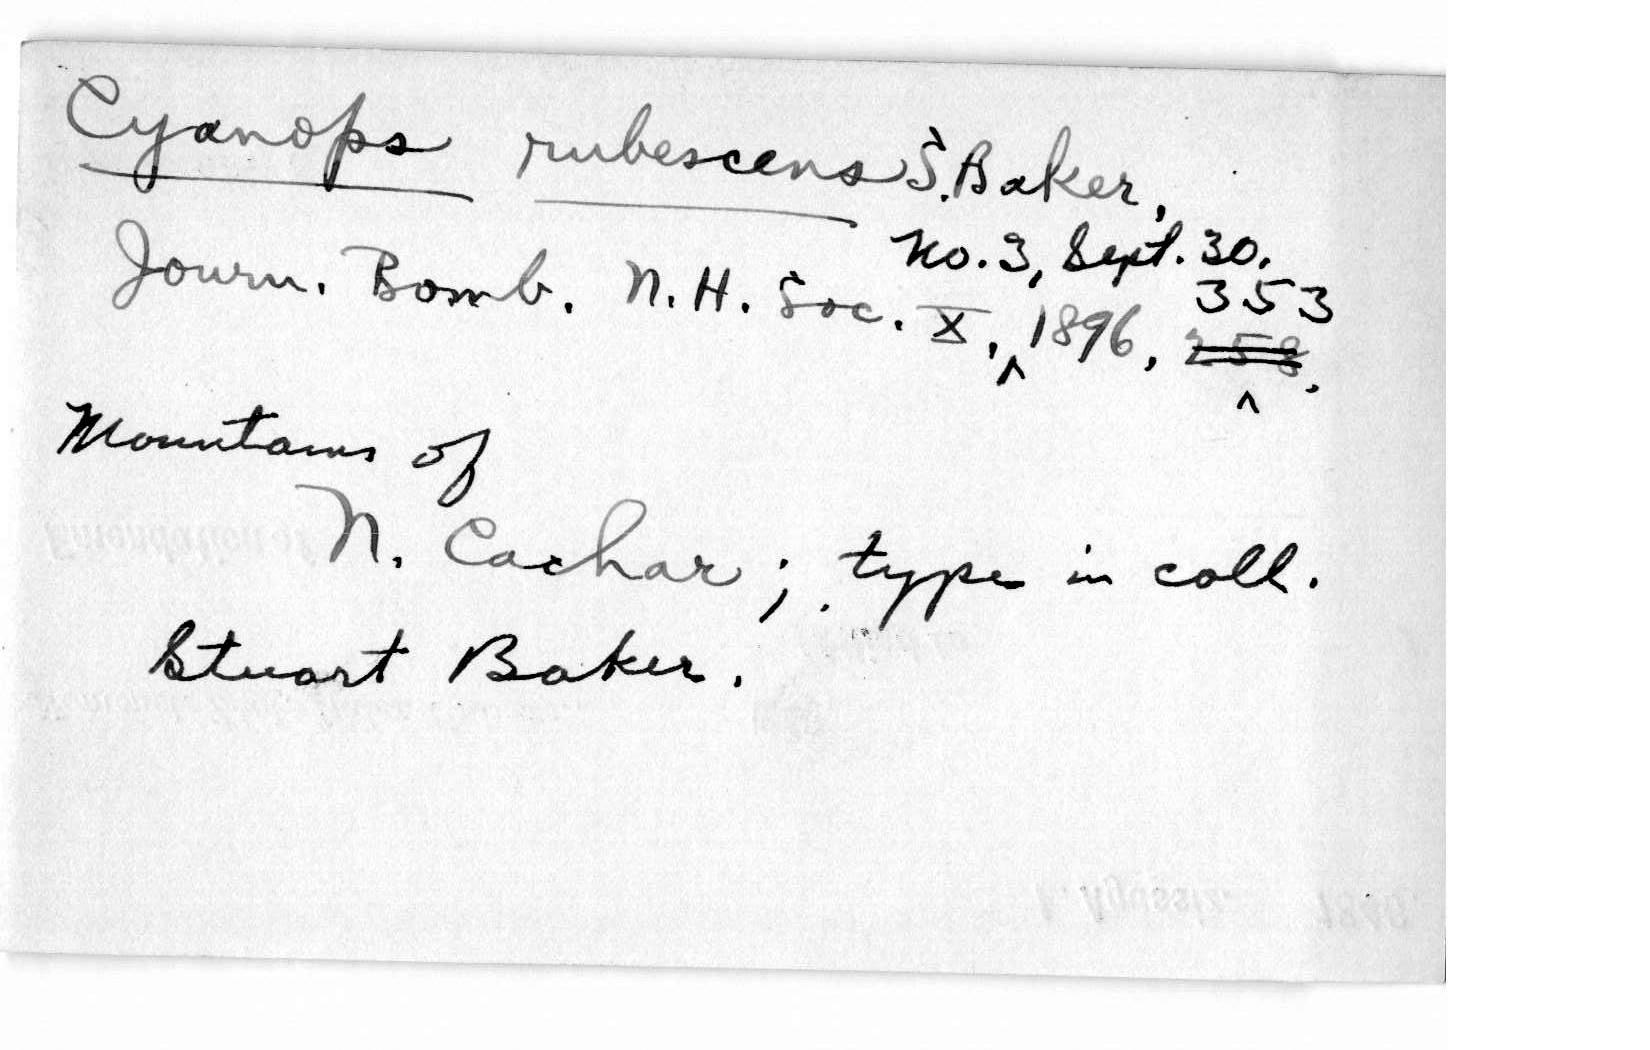 Cyanops rubescens S. Baker,
No. 3, Sept. 30.
353
Journ. Bomb. N. H. Soc. X, ^ 1896, 258.
^
Mountains of
N. Cachar; type in coll.
Stuart Baker.